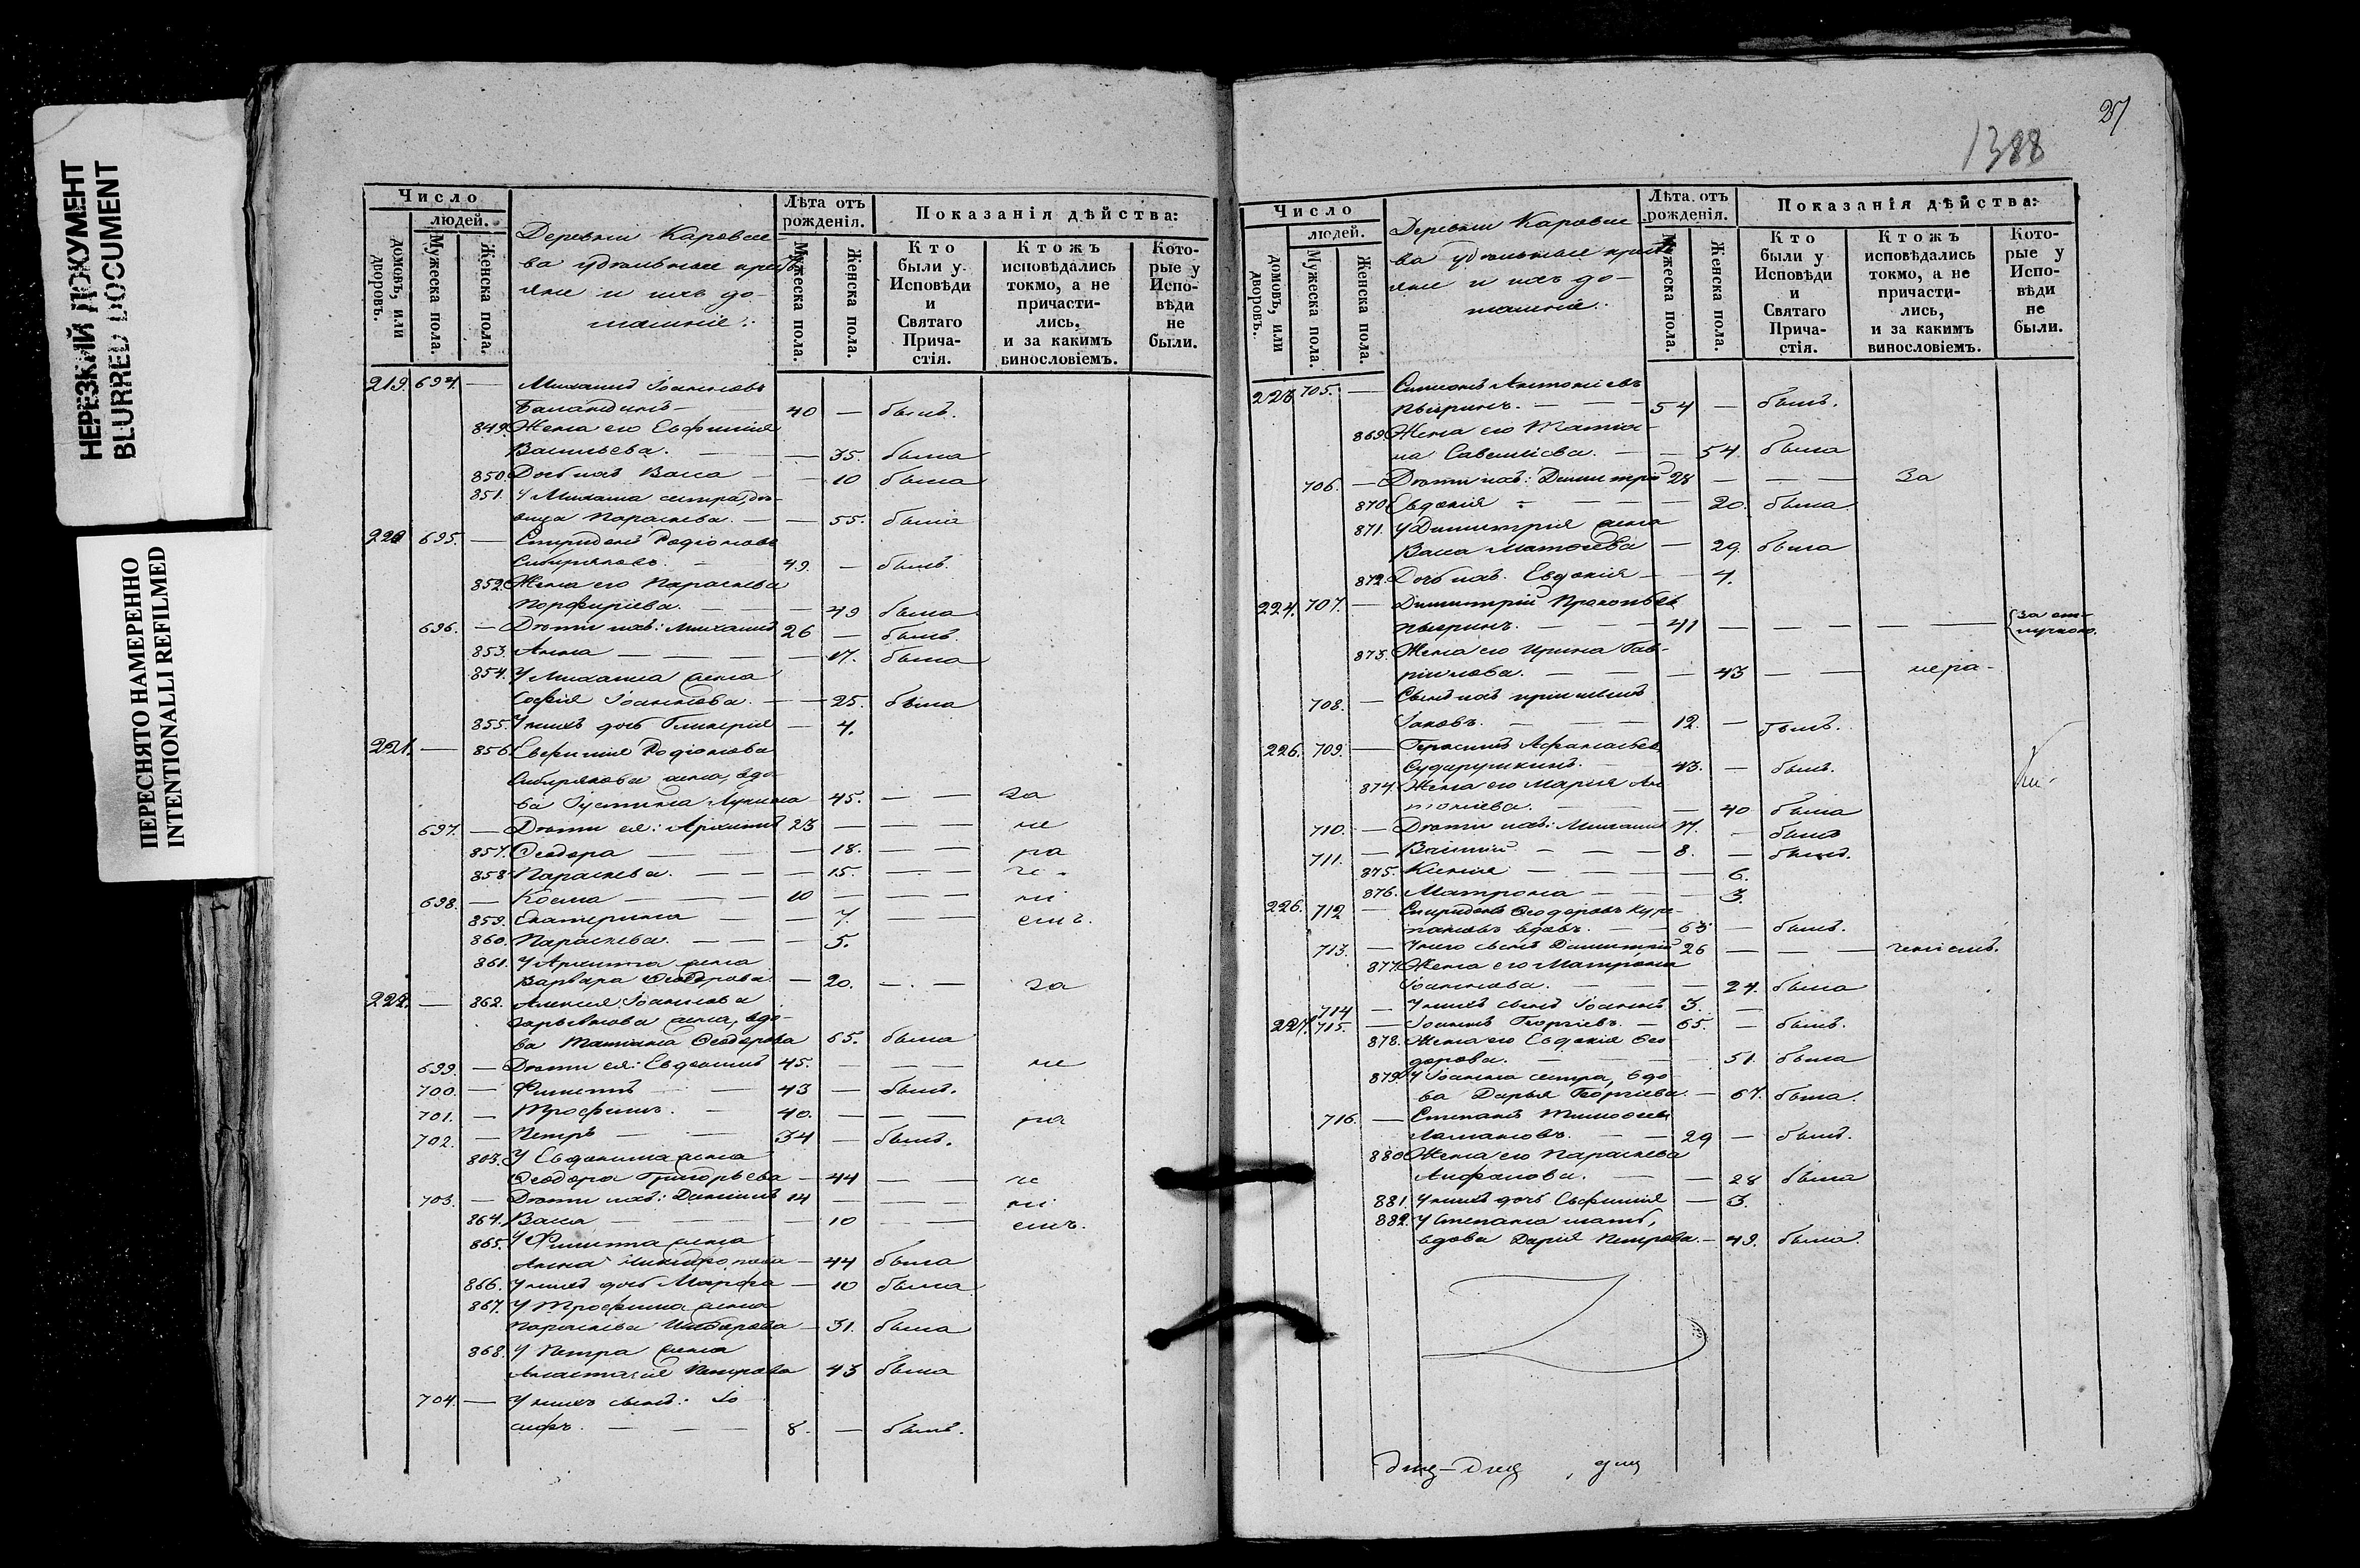 НЕРЕЗКИЙ ДОКУМЕНТ
BLURRED DOCUMENT
ПЕРЕСНЯТО НАМЕРЕННО
INTENTIONALLI REFILMED
Число
людей.
домовъ, или дворовъ.
Мужеска пола.
Женска пола.
Деревни Каровае-
ва удельные кресть
яне и ихъ до-
машніе:
Лѣта отъ
рожденія.
Мужеска пола.
Женска пола.
Показанія дѣйства:
Кто
были у
Исповѣди
и
Святаго
Прича-
стія.
Ктожъ
исповѣдались
токмо, а не
причасти-
лись,
и за какимъ
винословіемъ.
Кото-
рые у
Испо-
вѣди
не
были.
219. 694. — Михаилъ Іоанновъ
Баландинъ — 40 — былъ.
849. Жена его Евфимія
Васильева. — — 35. была
850. Дочь ихъ Васса — — 10 была
851. У Михаила сестра, дѣ-
вица Параскева. — — 55. была
220 695. — Спиридонъ Родіоновъ
Сибиряковъ. — 49. — былъ.
852. Жена его Параскева
Порфиріева. — — 49 была
696. — Дѣти ихъ: Михаилъ 26 — былъ.
853. Анна — — — — 17. была
854. У Михаила жена
Софія Іоаннова. — — 25. была
855. У нихъ дочь Гликерія — 4.
221. — 856. Евфимія Родіонова
Сибирякова жена, вдо-
ва Іустина Лукина — 45. — — за
697. — Дѣти ея: Архипъ 23 — — — не
857. Ѳеодора — — — 18. — — ра
858 Параскева. — — — 15. — — че-
698. — Косма — — — 10 — — — ні
859. Екатерина — — 7. — — емъ.
860. Параскева. — — — 5.
861. У Архипа жена
Варвара Ѳеодорова — 20. — — за
222. — 862. Алексія Іоаннова
жена, вдо-
ва Татіана Ѳеодорова 65. была
699. — Дѣти ея: Евдокимъ 45. — — — не
700. — Филиппъ — — 43 — былъ.
701. — Трофимъ. — 40. — — — ра
702. — Петръ — — 34 — былъ.
863. У Евдокима жена
Ѳеодора Григорьева — 44 — — че
703. — Дѣти ихъ: Даніилъ 14 — — — ні
864. Васса — — — — 10 — — емъ.
865. У Филиппа жена
Анна — 44 была
866. У нихъ дочь Марфа — 10 была
867. У Трофима жена
Параскева — 31. была
868. У Петра жена
Анастасія Петрова 43 была
704. — У нихъ сынъ: Іо
сифъ. — — — 8. — былъ.
27
1388
Число
людей.
домовъ, или дворовъ.
Мужеска пола.
Женска пола.
Деревни Каровае
ва удельные кресть
яне и ихъ до-
машніе:
Лѣта отъ
рожденія.
Мужеска пола.
Женска пола.
Показанія дѣйства:
Кто
были у
Исповѣди
и
Святаго
Прича-
стія.
Ктожъ
исповѣдались
токмо, а не
причасти-
лись,
и за какимъ
винословіемъ.
Кото-
рые у
Испо-
вѣди
не
были.
223 705. — Симеонъ Антоніевъ
54 — былъ.
869. Жена его Татіа-
на Савеліева. — — 54. была
706. — Дѣти ихъ: Димитрій 28 — — — За
870 Евдокія — — — 20. была
871. У Димитрія жена
Васса Матѳеева — 29. была
872. Дочь ихъ. Евдокія — — 4.
224. 707. — Димитрій Прокопьев
41 — — — — — за от-
лучкою.
873. Жена его Ирина Гав-
ріилова. — — — 43 — — нера-
708. — Сынъ ихъ
Іаковъ. — — — 12. — былъ.
226. 709. — Герасимъ Аѳанасьев
Сударушкинъ. — 43. — былъ.
874. Жена его Марія Ан
тоніева. — — — 40 была
710. — Дѣти ихъ: Михаилъ 17. — былъ
711. — Василій — — — 8. — былъ.
875. Ксенія — — — — 6.
876. Матрона — — — 3.
226. 712 — Спиридонъ Ѳеодоровъ
вдовъ. — — 63 — былъ.
713. — У него сынъ Димитрій 26 — — — ченіемъ.
877. Жена его Матрона
Іоаннова. — — — 24. была
714 — У нихъ сынъ Іоаннъ 3. —
227. 715. — Іоаннъ Георгіевъ. — 65. — былъ.
878. Жена его Евдокія Ѳео
дорова. — — — 51. была
879. У Іоанна сестра, вдо
ва Дарья Георгіева. — 67. была.
716. — Степанъ Тимоѳеев
— — 29 — былъ.
880 Жена его Параскева
— — 28 была
881. У нихъ дочь Евфимія — 3.
882. У Степана мать,
вдова Дарія Петрова. — 49. была.